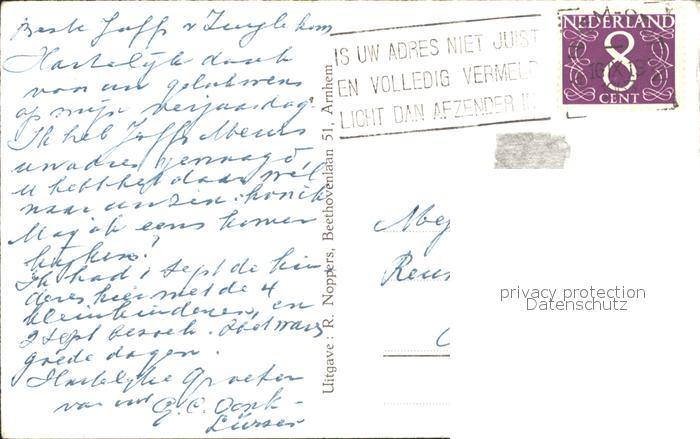 Beste Joffr v Zuylekom
Hartelijk dank
voor uw gelukwens
op mijn verjaardag.
Ik heb Joffr Meurs
uw adres gevraagd
u hebt het daar wel
naar uw zin. hoor ik
Mag ik eens komen
kijken?
Ik had 1 Sept de kin
deren hier met de 4
kleinkinderen, en
2 Sept bezoek.
goede dagen.
Hartelijke Groeten
van uw G. C. Oonk-
Lürsen
Uitgave: R. Noppers, Beethovenlaan 51, Arnhem
IS UW ADRES NIET JUIST
EN VOLLEDIG VERMELD
LICHT DAN AFZENDER IN
NEDERLAND
8
CENT
privacy protection
Datenschutz